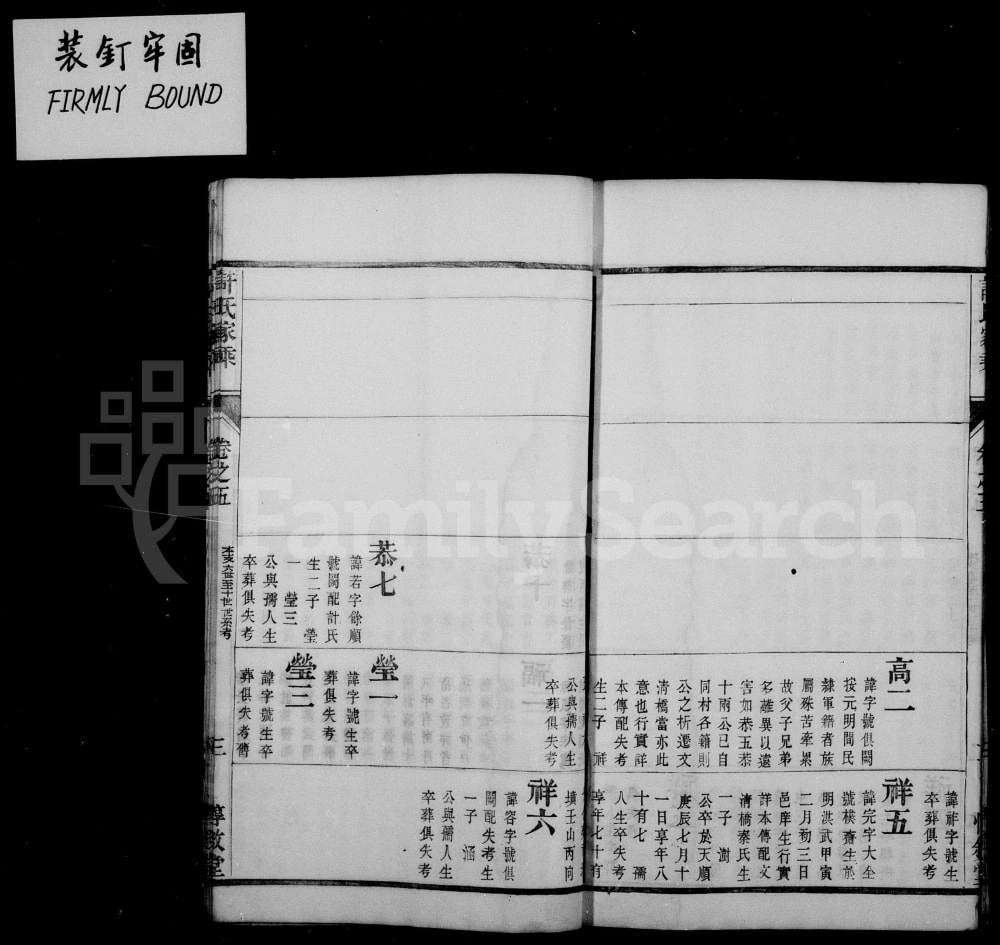 裝釘牢固
FIRMLY BOUND
FamilySearch
高二
諱字號俱闕
按元明間民
隸軍籍者族
屬殊苦牽累
故父子兄弟
多離異以遠
害如恭五恭
十兩公已自
同村各籍則
公之析遷文
清橋當亦此
意也行實詳
本傳配失考
生二子 祥
公與孺人生
卒葬俱失考
諱祚字號生
卒葬俱失考
祥五
諱完字大全
號樸齋生於
明洪武甲寅
二月初三日
邑庠生行實
詳本傳配文
清橋秦氏生
一子 澍
公卒於天順
庚辰七月十
一日享年八
十有七 孺
人生卒失考
享年七十有
墳壬山丙向
祥六
諱容字號俱
闕配失考生
一子 涵
公與孺人生
卒葬俱失考
恭七
諱若字餘順
號闕配計氏
生二子 瑩
一 瑩三
公與孺人生
卒葬俱失考
瑩一
諱字號生卒
葬俱失考
瑩三
諱字號生卒
葬俱失考舊
許氏家乘
卷之五
三